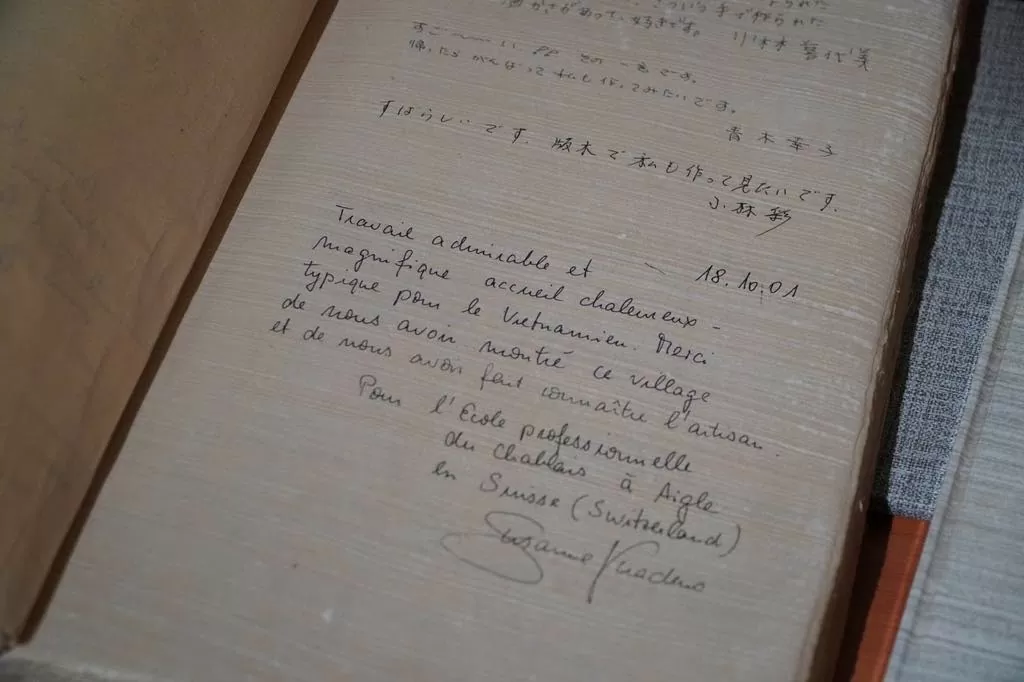 手で作られた
があって、好きです。
すご〜〜い!! その一言です。
帰ったらがんばって私も作ってみたいです。
青木幸子
すばらしいです。版木で私も作って見たいです。
小林彩
18.10.01
Travail admirable et
magnifique accueil chaleureux -
typique pour le Vietnamien. Merci
de nous avoir montré ce village
et de nous avoir fait connaître l'artisan.
Pour l'Ecole professionnelle
du Chablais à Aigle
en Suisse (Switzerland)
Suzanne